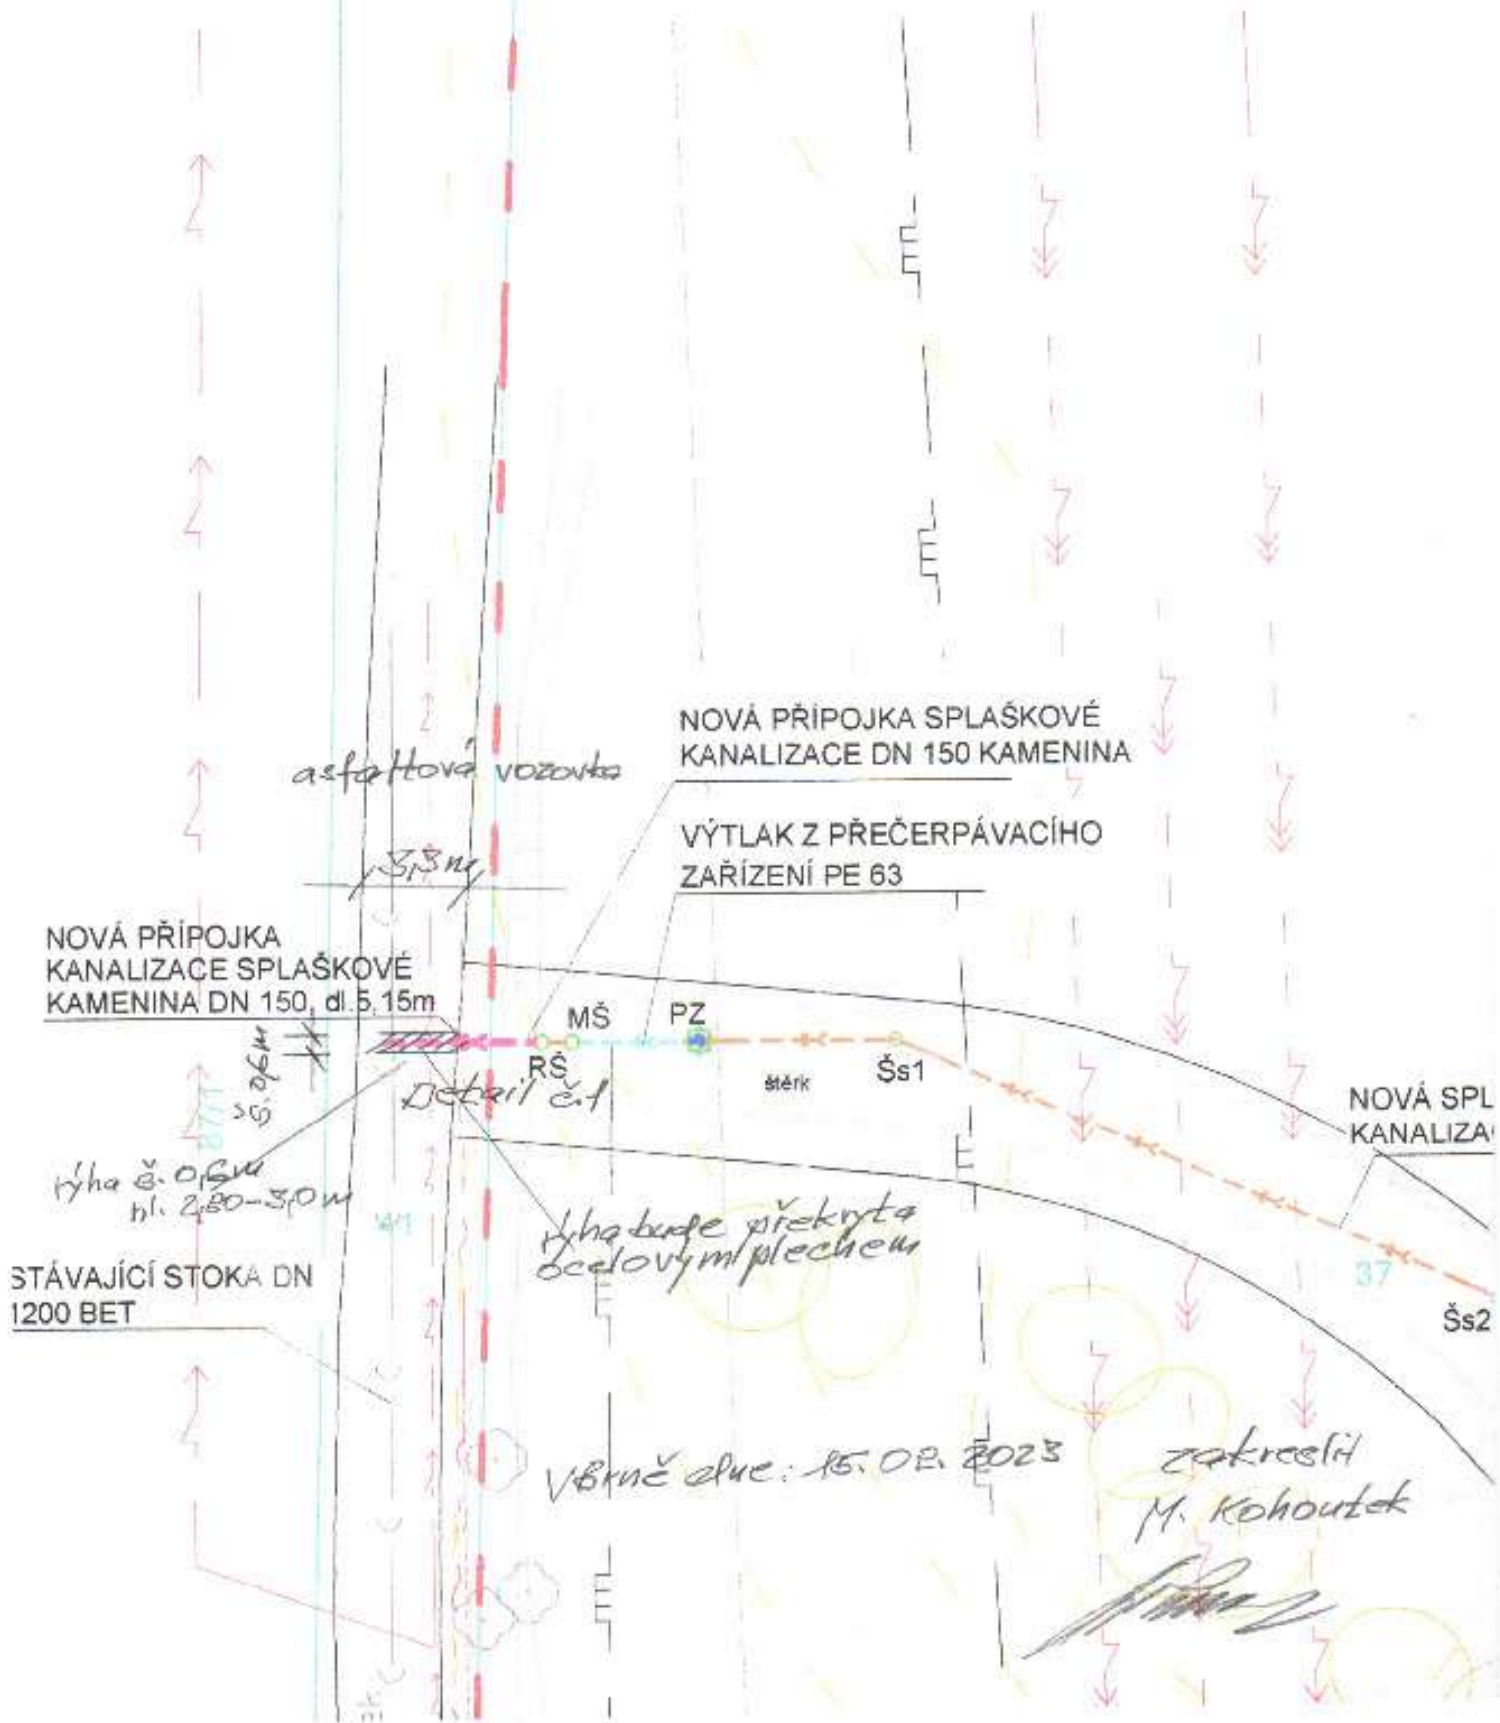 NOVÁ PŘÍPOJKA SPLAŠKOVÉ
KANALIZACE DN 150 KAMENINA
asfaltová vozovka
VÝTLAK Z PŘEČERPÁVACÍHO
ZAŘÍZENÍ PE 63
3,3m
NOVÁ PŘÍPOJKA
KANALIZACE SPLAŠKOVÉ
KAMENINA DN 150, dl.5,15m
MŠ
PZ
RŠ
Šs1
štěrk
š. 0,6m
Detail č.1
NOVÁ SPL
KANALIZA
rýha š. 0,6m
hl. 2,80-3,0m
rýha bude překryta
ocelovým plechem
STÁVAJÍCÍ STOKA DN
1200 BET
37
Šs2
V Brně dne: 15.02.2023
zakreslil
M. Kohoutek